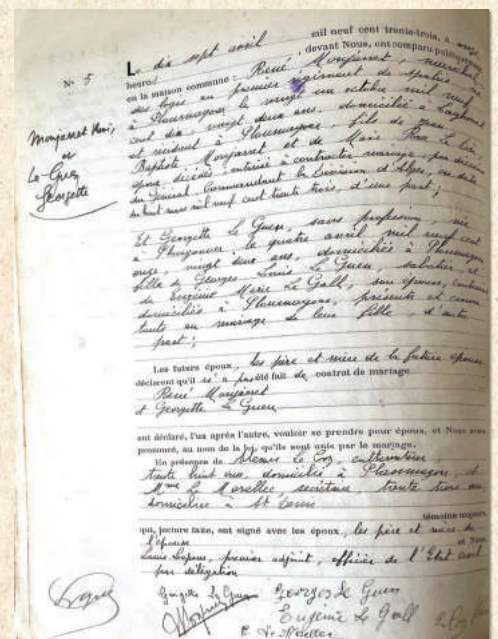 N° 5
Monjarret René,
et
Le Guen
Georgette
Le dix sept avril mil neuf cent trente-trois, à onze
heures, devant Nous, ont comparu publiquement
en la maison commune : René Monjarret, maréchal
des logis au premier régiment de spahis né
à Ploumagoar le vingt un octobre mil neuf
cent dix, vingt deux ans, domicilié à Laghouat
et résidant à Ploumagoar, fils de
Baptiste Monjarret et de Marie
décédés, autorisé à contracter mariage, par décision
du Général Commandant la Division d'Alger, en date
du huit mars mil neuf cent trente trois, d'une part ;
Et Georgette Le Guen, sans profession, née
à le quatre avril mil neuf cent
onze, vingt deux ans, domiciliée à Ploumagoar
fille de Georges Louis Le Guen, sabotier et
de Eugénie Marie Le Gall, son épouse,
domiciliés à Ploumagoar, présents et consen
tants au mariage de leur fille, d'autre
part ;
Les futurs époux, les père et mère de la future épouse
déclarent qu'il n'a pas été fait de contrat de mariage
René Monjarret
et Georgette Le Guen
ont déclaré, l'un après l'autre, vouloir se prendre pour époux, et Nous avons
prononcé, au nom de la loi, qu'ils sont unis par le mariage.
En présence de Le Coz cultivateur
trente huit ans, domicilié à Ploumagoar, et
Mme Le Morellec secrétaire, trente trois ans
domiciliée à St Denis
témoins majeurs,
qui, lecture faite, ont signé avec les époux, les père et mère de
l'épouse et Nous,
Louis premier adjoint, officier de l'Etat civil
par délégation
Georgette Le Guen
Georges Le Guen
Monjarret
Eugénie Le Gall
Le Morellec